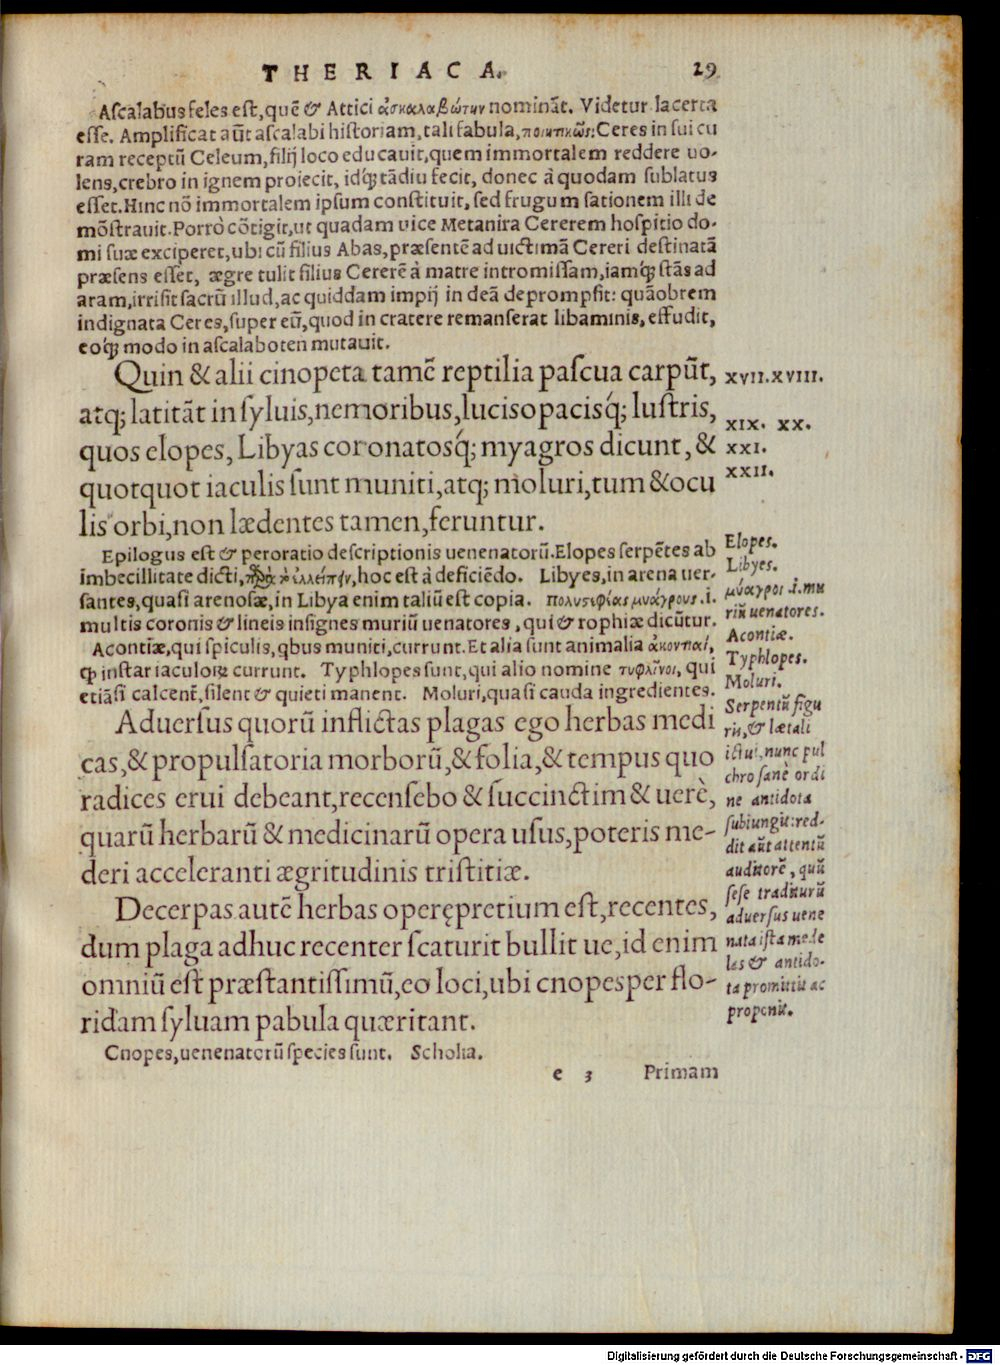 THERIACA. 29
Ascalabus feles est, quẽ & Attici ἀσκαλαβώτην nominãt. Videtur lacerta
esse. Amplificat aũt ascalabi historiam, tali fabula, ποιητικῶς: Ceres in sui cu
ram receptũ Celeum, filij loco educauit, quem immortalem reddere uo-
lens, crebro in ignem proiecit, idq́; tãdiu fecit, donec à quodam sublatus
esset. Hinc nõ immortalem ipsum constituit, sed frugum sationem illi de
mõstrauit. Porrò cõtigit, ut quadam uice Metanira Cererem hospitio do-
mi suæ exciperet, ubi cũ filius Abas, præsentẽ ad uictimã Cereri destinatã
præsens esset, ægre tulit filius Cererẽ à matre intromissam, iamq́; stãs ad
aram, irrisit sacrũ illud, ac quiddam impij in deã deprompsit: quãobrem
indignata Ceres, super eũ, quod in cratere remanserat libaminis, effudit,
eoq́; modo in ascalaboten mutauit.
Quin & alii cinopeta tamẽ reptilia pascua carpũt,
atq; latitãt in syluis, nemoribus, lucis opacisq́; lustris,
quos elopes, Libyas coronatosq́; myagros dicunt, &
quotquot iaculis sunt muniti, atq; moluri, tum & ocu
lis orbi, non lædentes tamen, feruntur.
XVII. XVIII.
XIX. XX.
XXI.
XXII.
Epilogus est & peroratio descriptionis uenenatorũ. Elopes serpẽtes ab
imbecillitate dicti, ἐλλείπειν, hoc est à deficiẽdo. Libyes, in arena uer-
santes, quasi arenosæ, in Libya enim taliũ est copia. πολυστεφίας μυάγρους .i.
multis coronis & lineis insignes muriũ uenatores, qui & rophiæ dicũtur.
Acontiæ, qui spiculis, qbus muniti, currunt. Et alia sunt animalia ἀκοντίαι,
ꝙ instar iaculoꝝ currunt. Typhlopes sunt, qui alio nomine τυφλῖνοι, qui
etiãsi calcent̃, silent & quieti manent. Moluri, quasi cauda ingredientes.
Elopes.
Libyes.
μύαγροι .i. mu
riũ uenatores.
Acontiæ.
Typhlopes.
Moluri.
Aduersus quorũ inflictas plagas ego herbas medi
cas, & propulsatoria morborũ, & folia, & tempus quo
radices erui debeant, recensebo & succinctim & uerè,
quarũ herbarũ & medicinarũ opera usus, poteris me-
deri acceleranti ægritudinis tristitiæ.
Decerpas autẽ herbas operępretium est, recentes,
dum plaga adhuc recenter scaturit bullit ue, id enim
omniũ est præstantissimũ, eo loci, ubi cnopes per flo-
ridam syluam pabula quæritant.
Serpentũ figu
ris, & lætali
ictui, nunc pul
chro sanè ordi
ne antidota
subiungit: red-
dit aũt attentũ
auditorẽ, quũ
sese traditurũ
aduersus uene
nata ista mede
las & antido-
ta promittit ac
proponit.
Cnopes, uenenatorũ species sunt. Scholia.
e 3 Primam
Digitalisierung gefördert durch die Deutsche Forschungsgemeinschaft - DFG